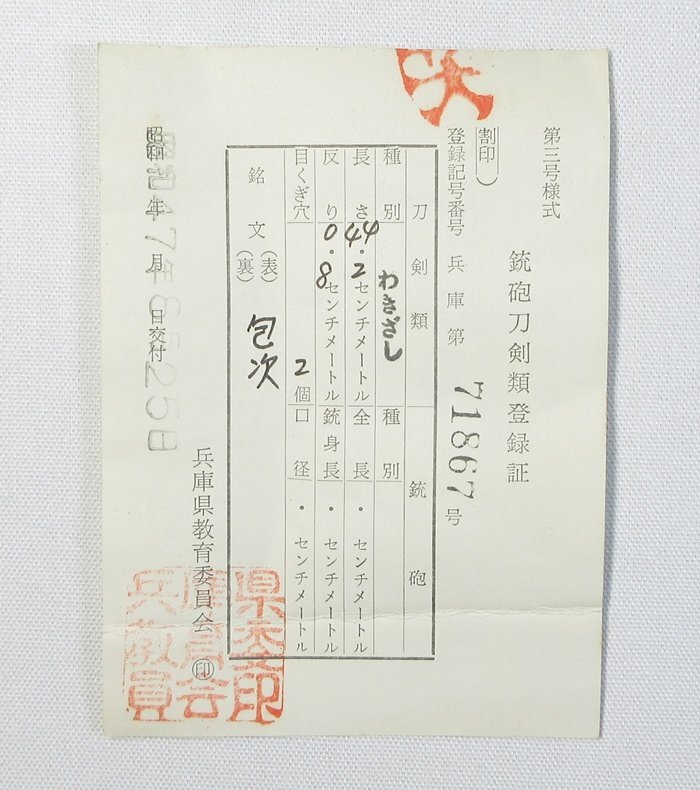 第三号様式
銃砲刀剣類登録証
割印
登録記号番号 兵庫第 71867 号
刀剣類 銃砲
種別 わきざし 種別
長さ 44.2 センチメートル 全長 ・ センチメートル
反り 0.8 センチメートル 銃身長 ・ センチメートル
目くぎ穴 2 個 口径 ・ センチメートル
銘文 (表)
(裏) 包次
兵庫県教育委員会 ㊞
昭和 年 月 日交付